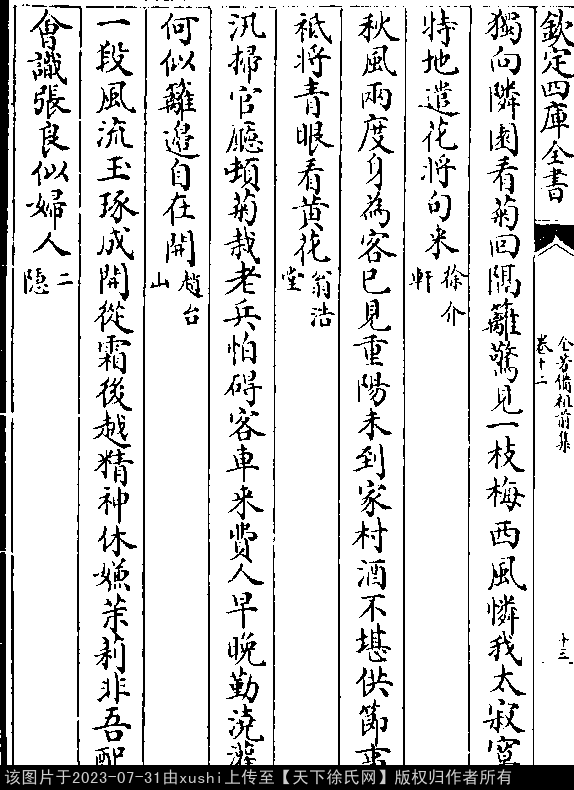 欽定四庫全書
全芳備祖前集
卷十二
十三
獨向隣園看菊回隔籬驚見一枝梅西風憐我太寂寞
特地遣花將句来徐介軒
秋風兩度身為客已見重陽未到家村酒不堪供節事
祗將青眼看黄花翁浩堂
汛掃官廳頓菊栽老兵怕碍客車来費人早晚勤澆灌
何似籬邉自在開趙台山
一段風流玉琢成開從霜後越精神休嫌茉莉非吾配
㑹識張良似婦人二隠
该图片于2023-07-31由xushi上传至【天下徐氏网】版权归作者所有